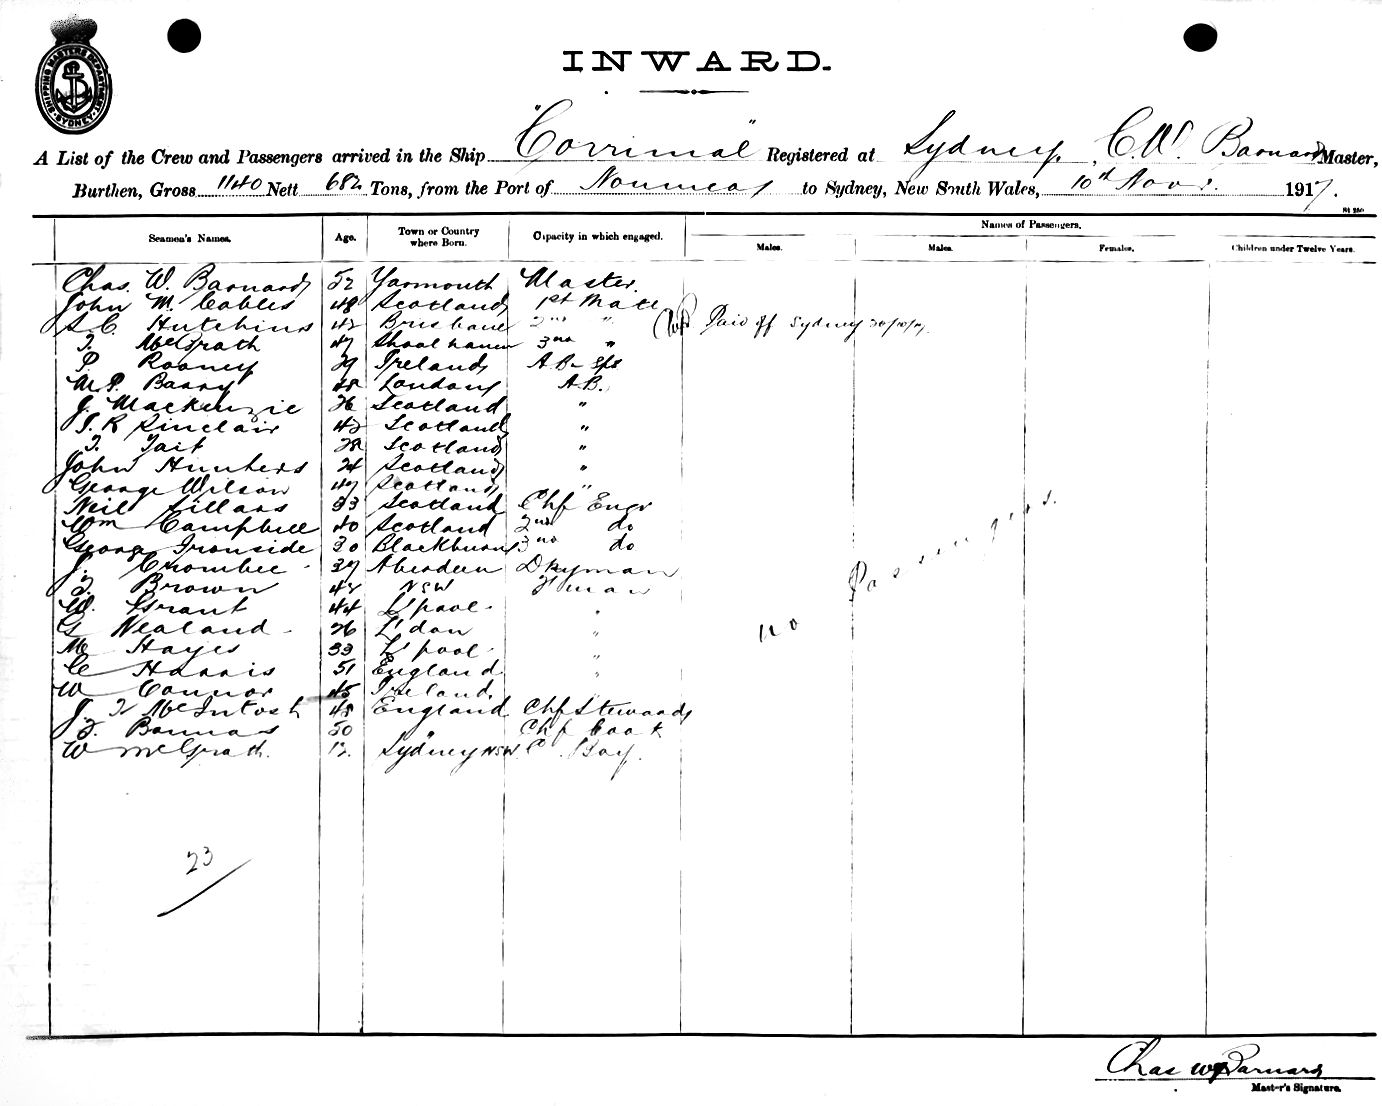 SHIPPING MASTERS DEPARTMENT SYDNEY
INWARD.
A List of the Crew and Passengers arrived in the Ship "Corrimal" Registered at Sydney, C. W. Barnard Master,
Burthen, Gross 1140 Nett 682 Tons, from the Port of Noumea to Sydney, New South Wales, 10th Novr. 1917.
Names of Passengers.
Seamen's Names. Age. Town or Country where Born. Capacity in which engaged. Males. Males. Females. Children under Twelve Years.
Chas. W. Barnard 52 Yarmouth Master.
John M. Cables 48 Scotland 1st Mate
S C. Hutchins 42 Brisbane 2nd " Paid off Sydney
T. McGrath 47 Shoalhaven 3rd "
P. Rooney 29 Ireland A.B.
M. P. Barry 48 London A.B.
J. Mackenzie 26 Scotland "
J. R Sinclair 42 Scotland "
T. Tait 28 Scotland "
John Hunters 24 Scotland "
George Wilson 47 Scotland "
Neil Sillars 33 Scotland Chf Engr
Wm Campbell 40 Scotland 2nd do
George Ironside 30 Blackburn 3rd do
J. Crombie 37 Aberdeen Dkyman
T. Brown 42 NSW F'man
W. Grant 44 L'pool "
G Nealand 26 L'don "
M Hayes 33 L'pool "
C Harris 51 England "
W Connor 45 Ireland "
J. T McIntosh 48 England Chf Steward
50 " Chf Cook
W McGrath. 12 Sydney NSW C. Boy.
no Passengers.
23
Chas W Barnard
Master's Signature.